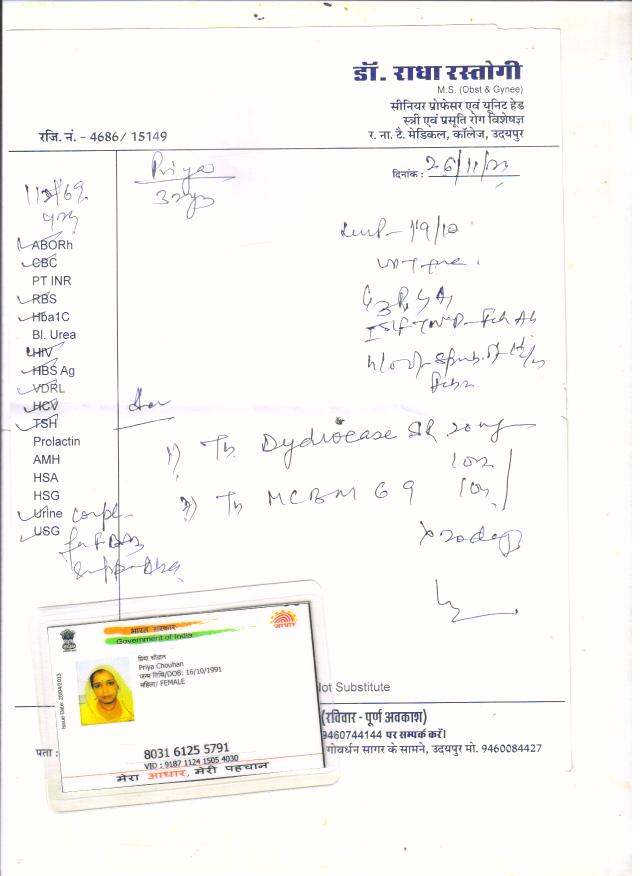 डॉ. राधा रस्तोगी
M.S. (Obst & Gynee)
सीनियर प्रोफेसर एवं यूनिट हेड
स्त्री एवं प्रसूति रोग विशेषज्ञ
र. ना. टै. मेडिकल, कॉलेज, उदयपुर
रजि. नं. - 4686/ 15149
Priya
दिनांक : 26/11/23
32 yrs
LMP - 19/10
UPT +ve
ABORh
CBC
PT INR
RBS
Hba1C
Bl. Urea
HIV
HBS Ag
VDRL
HCV
TSH
Prolactin
AMH
HSA
HSG
Urine
USG
1) Tb Dydrocase SR 20mg
2) Tb MCBM 69
x 20 days
भारत सरकार
Government of India
आधार
Issue Date: 20/04/2013
प्रिया चौहान
Priya Chouhan
जन्म तिथि/DOB: 16/10/1991
महिला/ FEMALE
8031 6125 5791
VID : 9187 1124 1505 4030
मेरा आधार, मेरी पहचान
Not Substitute
(रविवार - पूर्ण अवकाश)
9460744144 पर सम्पर्क करें।
पता :
गोवर्धन सागर के सामने, उदयपुर मो. 9460084427